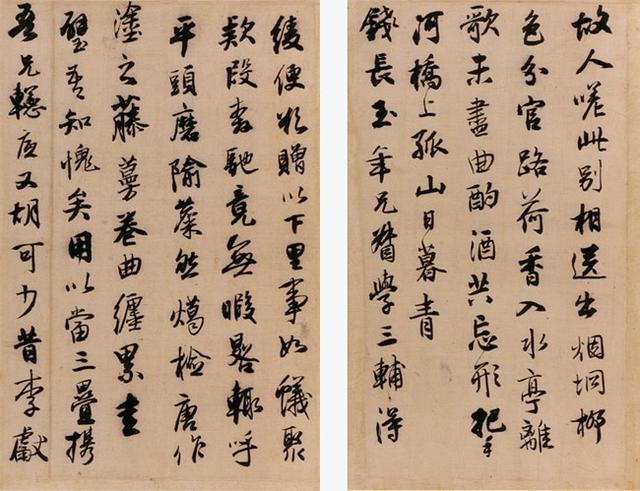 故人嗟此別相送出烟坰柳
色分官路荷香入水亭離
歌未盡曲酌酒共忘形把手
河橋上孤山日暮青
錢長玉年兄督學三輔得
綾便欲贈以下里事如蟻聚
欵段奔馳竟無暇晷輒呼
平頭磨隃麋然燭檢唐作
塗之藤蔓卷曲纏累圭
璧吾知愧矣用以當三疊携
吾兄又胡可少昔李獻